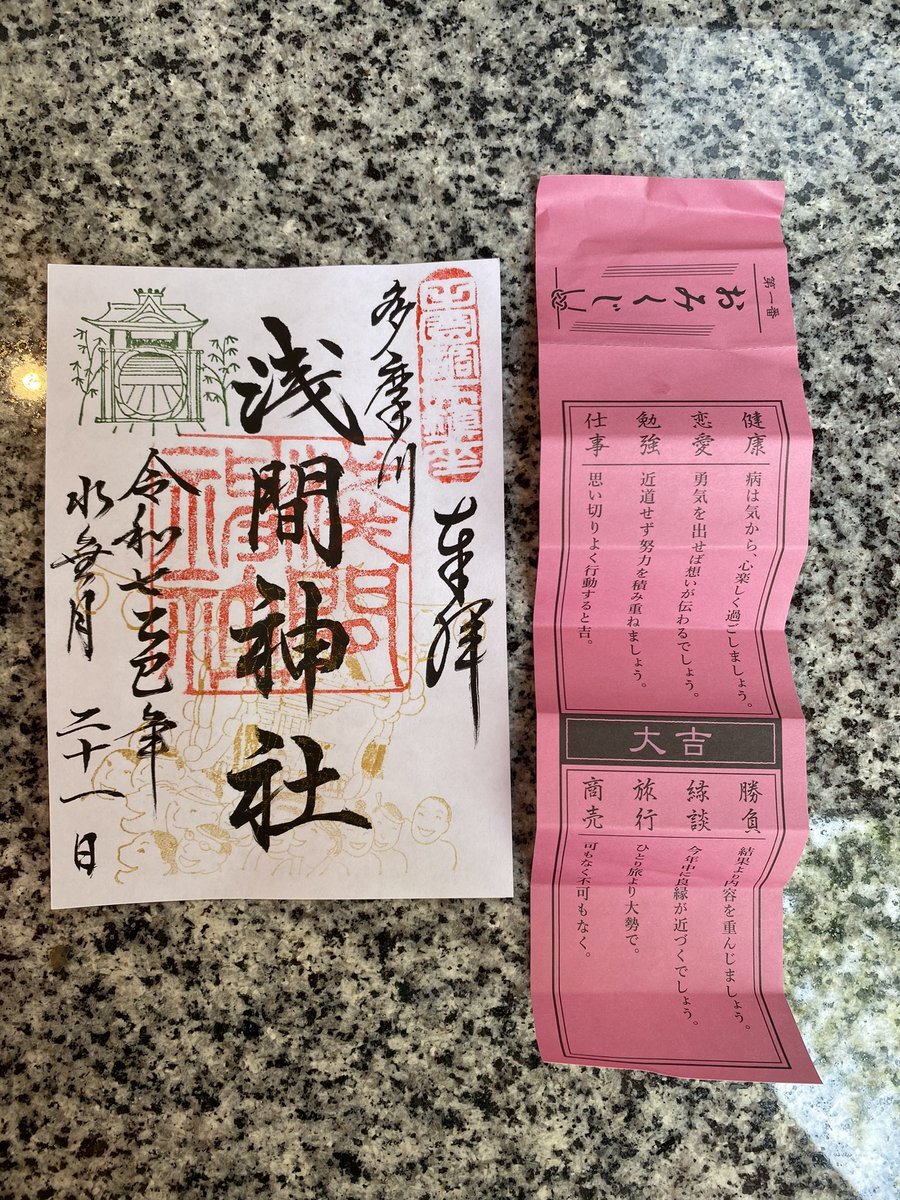 奉拝
多摩川
浅間神社
令和七乙巳年
水無月 二十一日
第一番
おみくじ
健康 病は気から、心楽しく過ごしましょう。
恋愛 勇気を出せば想いが伝わるでしょう。
勉強 近道せず努力を積み重ねましょう。
仕事 思い切りよく行動すると吉。
大吉
勝負 結果より内容を重んじましょう。
縁談 今年中に良縁が近づくでしょう。
旅行 ひとり旅より大勢で。
商売 可もなく不可もなく。